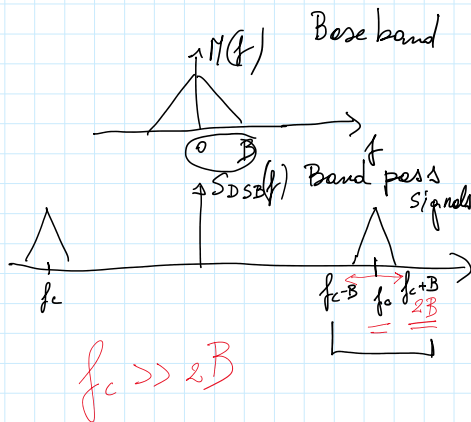 Base band
M(f)
0 B f
S_DSB(f) Band pass
signals
fc fc-B fc fc+B
2B
fc >> 2B